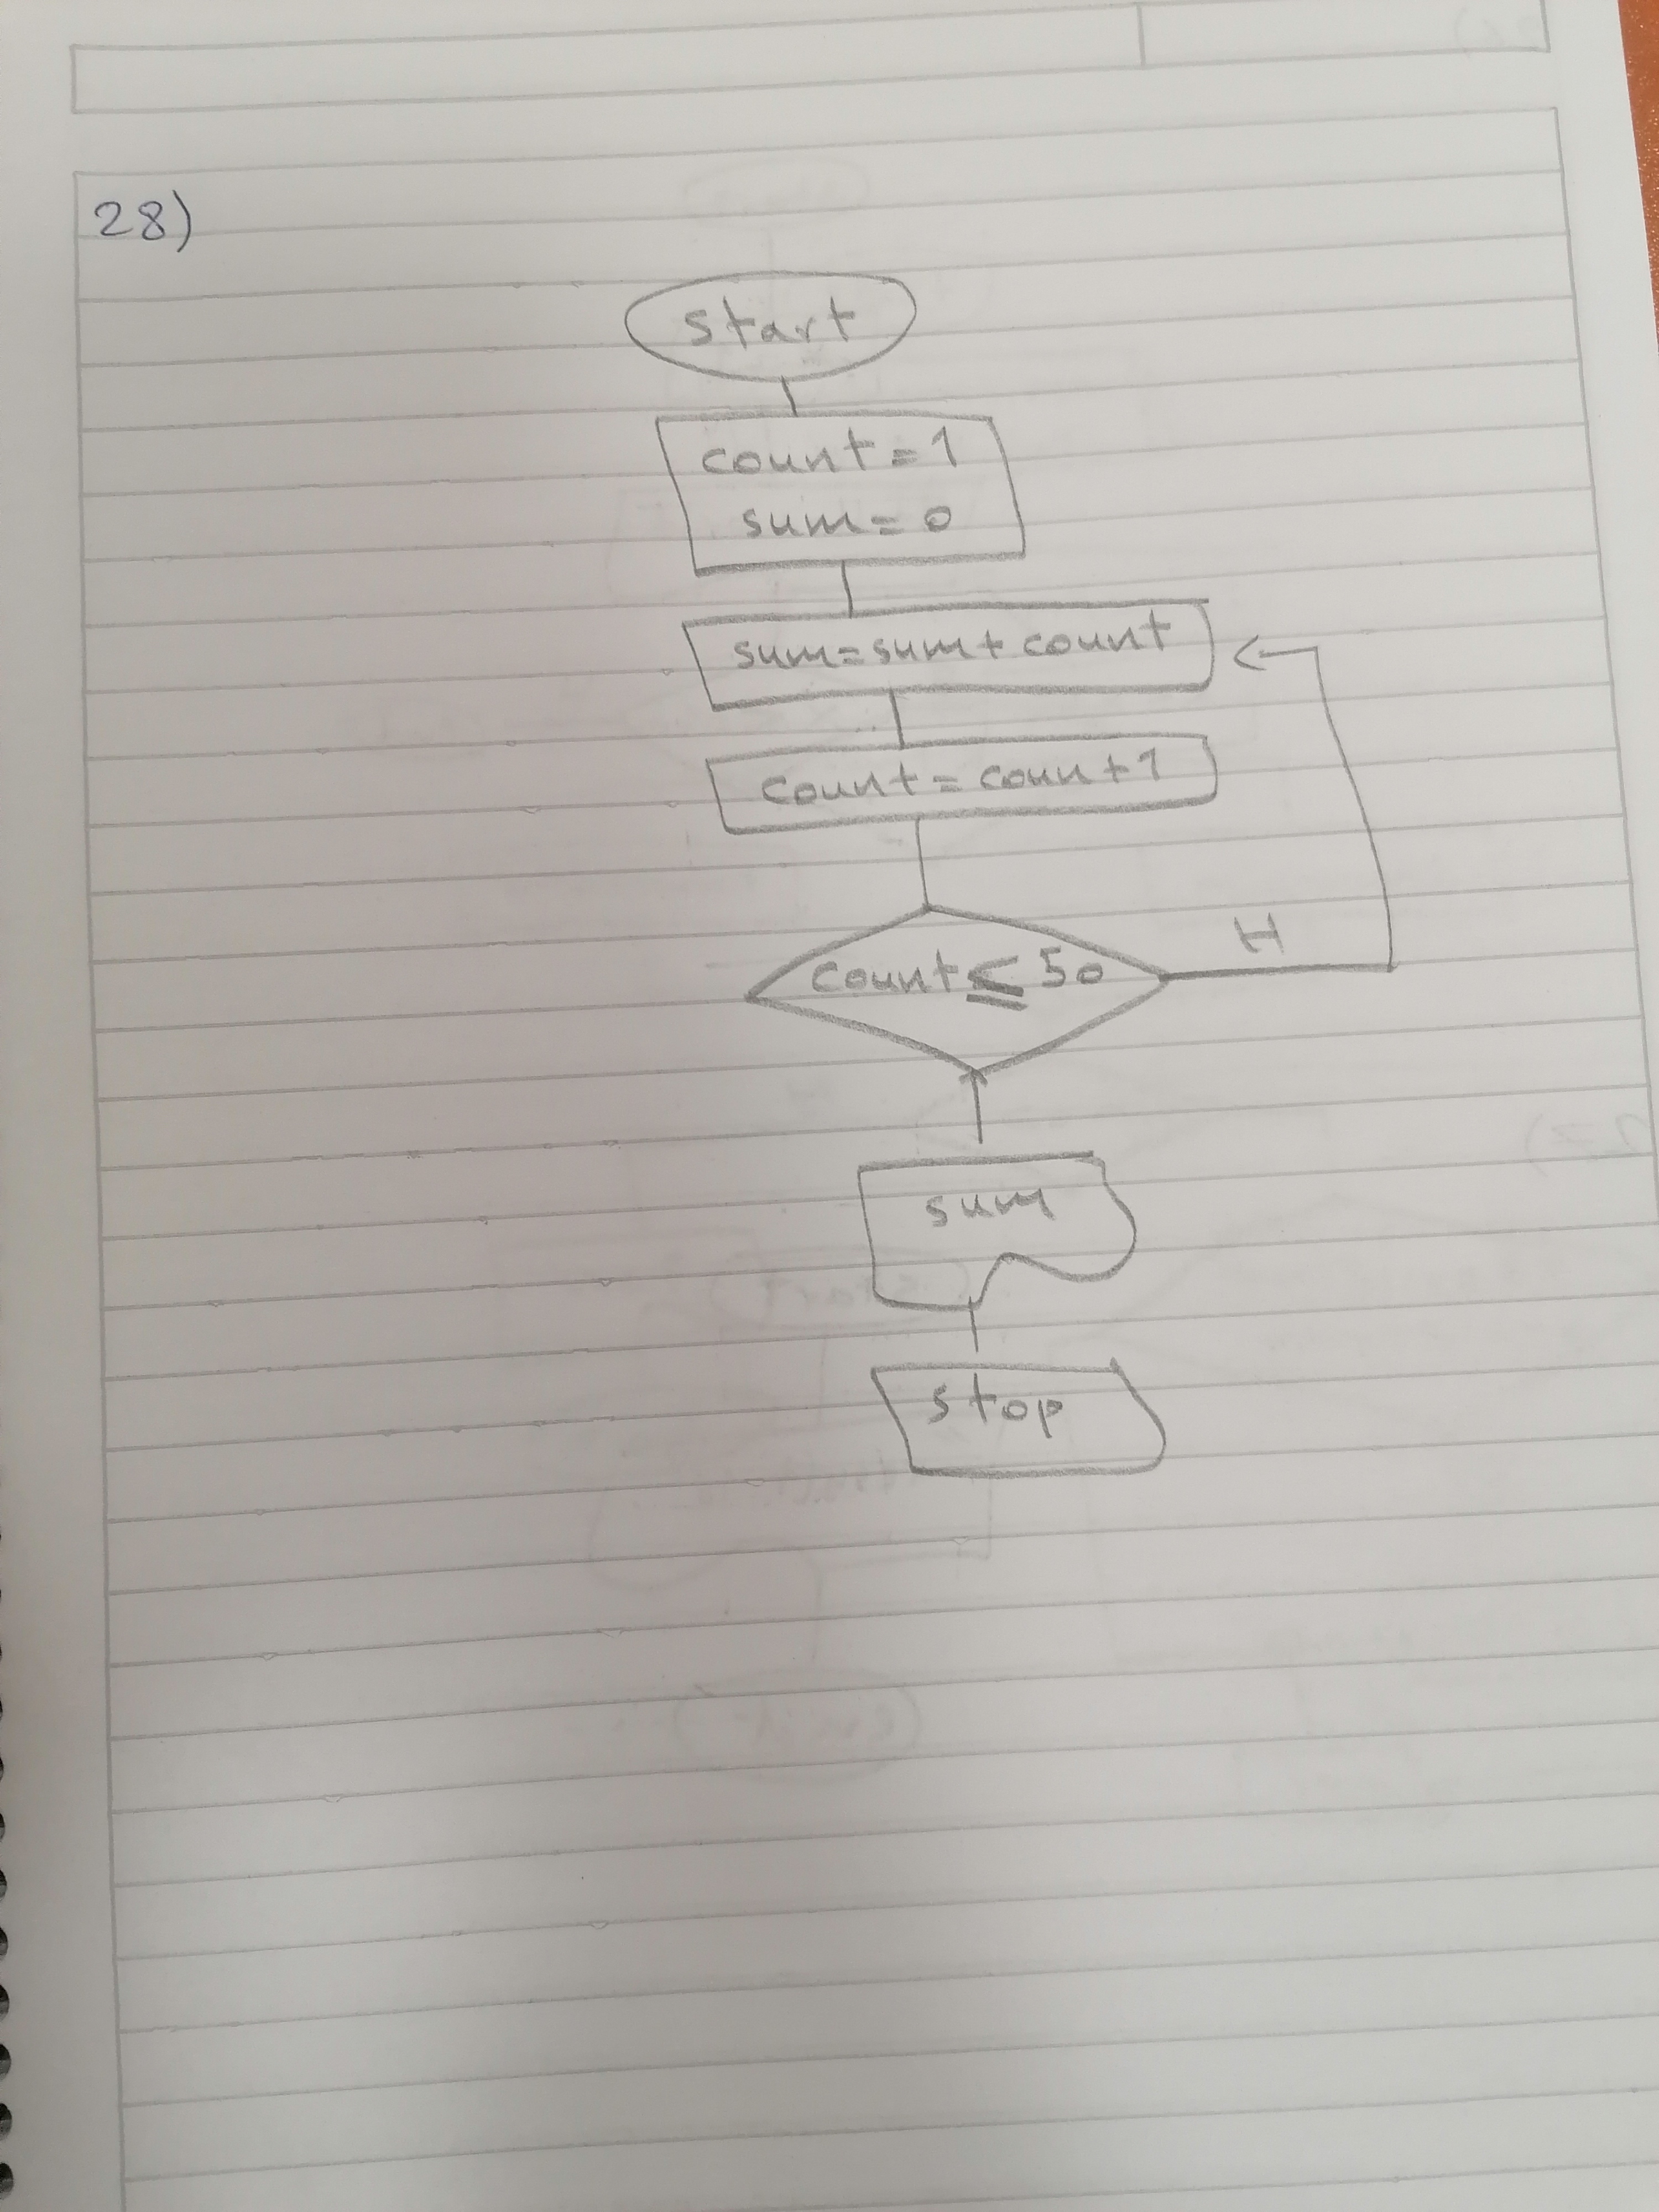 28)
start
count = 1
sum = 0
sum = sum + count
count = coun+1
count ≤ 50
H
sum
stop